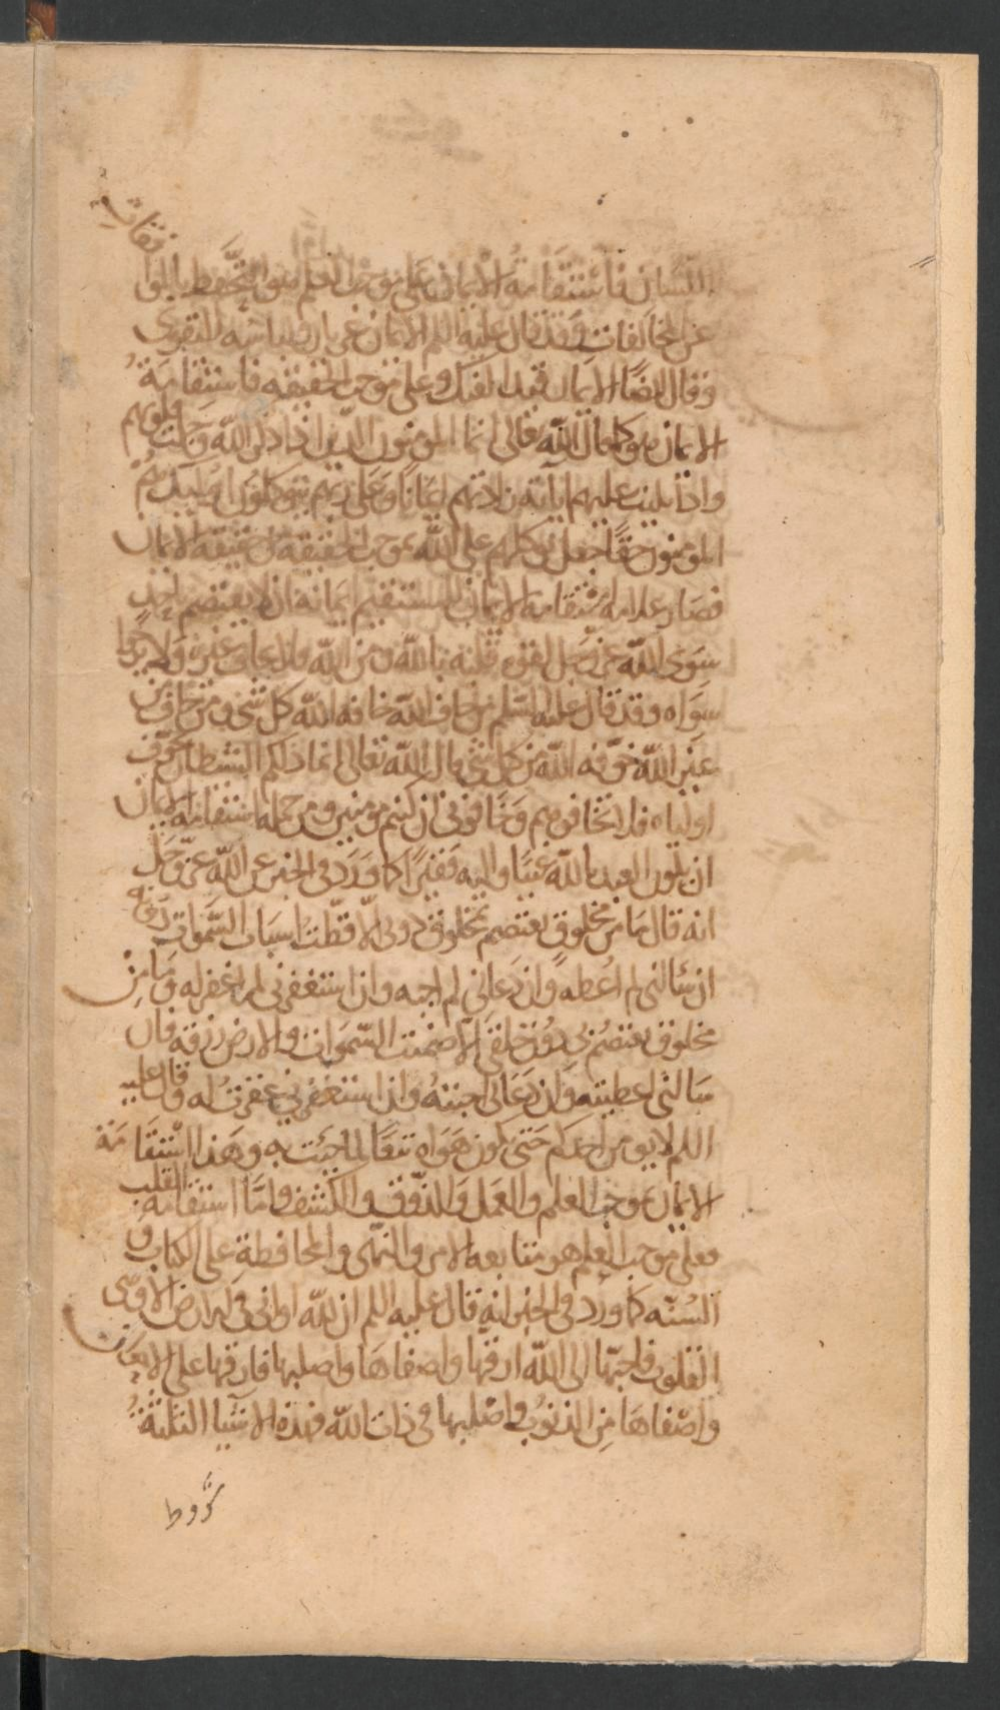 اللسان فاستقامة الايمان على موجب العلم هو التحفظ بالموا
فقات
عن المخالفات وقد قال عليه السلم الايمان عريان ولباسه التقوى
وقال ايضا الايمان قيد الفتك وعلى موجب الحقيقه فاستقامة
الايمان هو كما قال الله تعالى انما المومنون الذين اذا ذكر الله وجلت قلوبهم
واذا تليت عليهم اياته زادتهم ايمانا وعلى ربهم يتوكلون اوليك هم
المومنون حقا جعل توكلهم على الله موجب الحقيقة حقيقة الايمان
فصار علامة استقامة الايمان للمستقيم ايمانه ان لا يعتصم باحد
سوى الله عز وجل لقوة قلبه بالله ومن الله فلا يخاف غيره ولا يرجوا
سواه وقد قال عليه السلم من خاف الله خافه الله كل شى ومن خاف من
غير الله خوفه الله من كل شي قال الله تعالى انما ذلكم الشيطان يخوف
اولياه فلا تخافوهم وخافوني ان كنتم مومنين ومن جملة استقامة الايمان
ان يكون العبد بالله غنيا واليه فقيرا كما ورد فى الخبر عن الله عز وجل
انه قال ما من مخلوق يعتصم بمخلوق دوني الا قطعت اسباب السموات دونه
ان سالنى لم اعطه وان دعاني لم اجبه وان استغفرنى لم اغفر له وما من
مخلوق يعتصم بى دون خلقي الا ضمنت السموات والارض رزقه فان
سالنى اعطيته وان دعانى اجبته وان استغفرني غفرت له وقال عليه
السلم لا يومن احدكم حتى يكون هواه تبعا لما جئت به وهذا استقامة
الايمان بموجب العلم والعمل والذوق والكشف واما استقامة القلب
فعلى موجب العلم هو متابعة الامر والنهى والمحافظة على الكتاب و
السنه كما ورد في الخبر انه قال عليه السلم ان لله اوانى في ارض الا وهى
القلوب فاحبها الى الله ارقها واصفاها واصلبها فارقها على الاخوان
واصفاها من الذنوب واصلبها في ذات الله فهذه الاشيا الثلثة